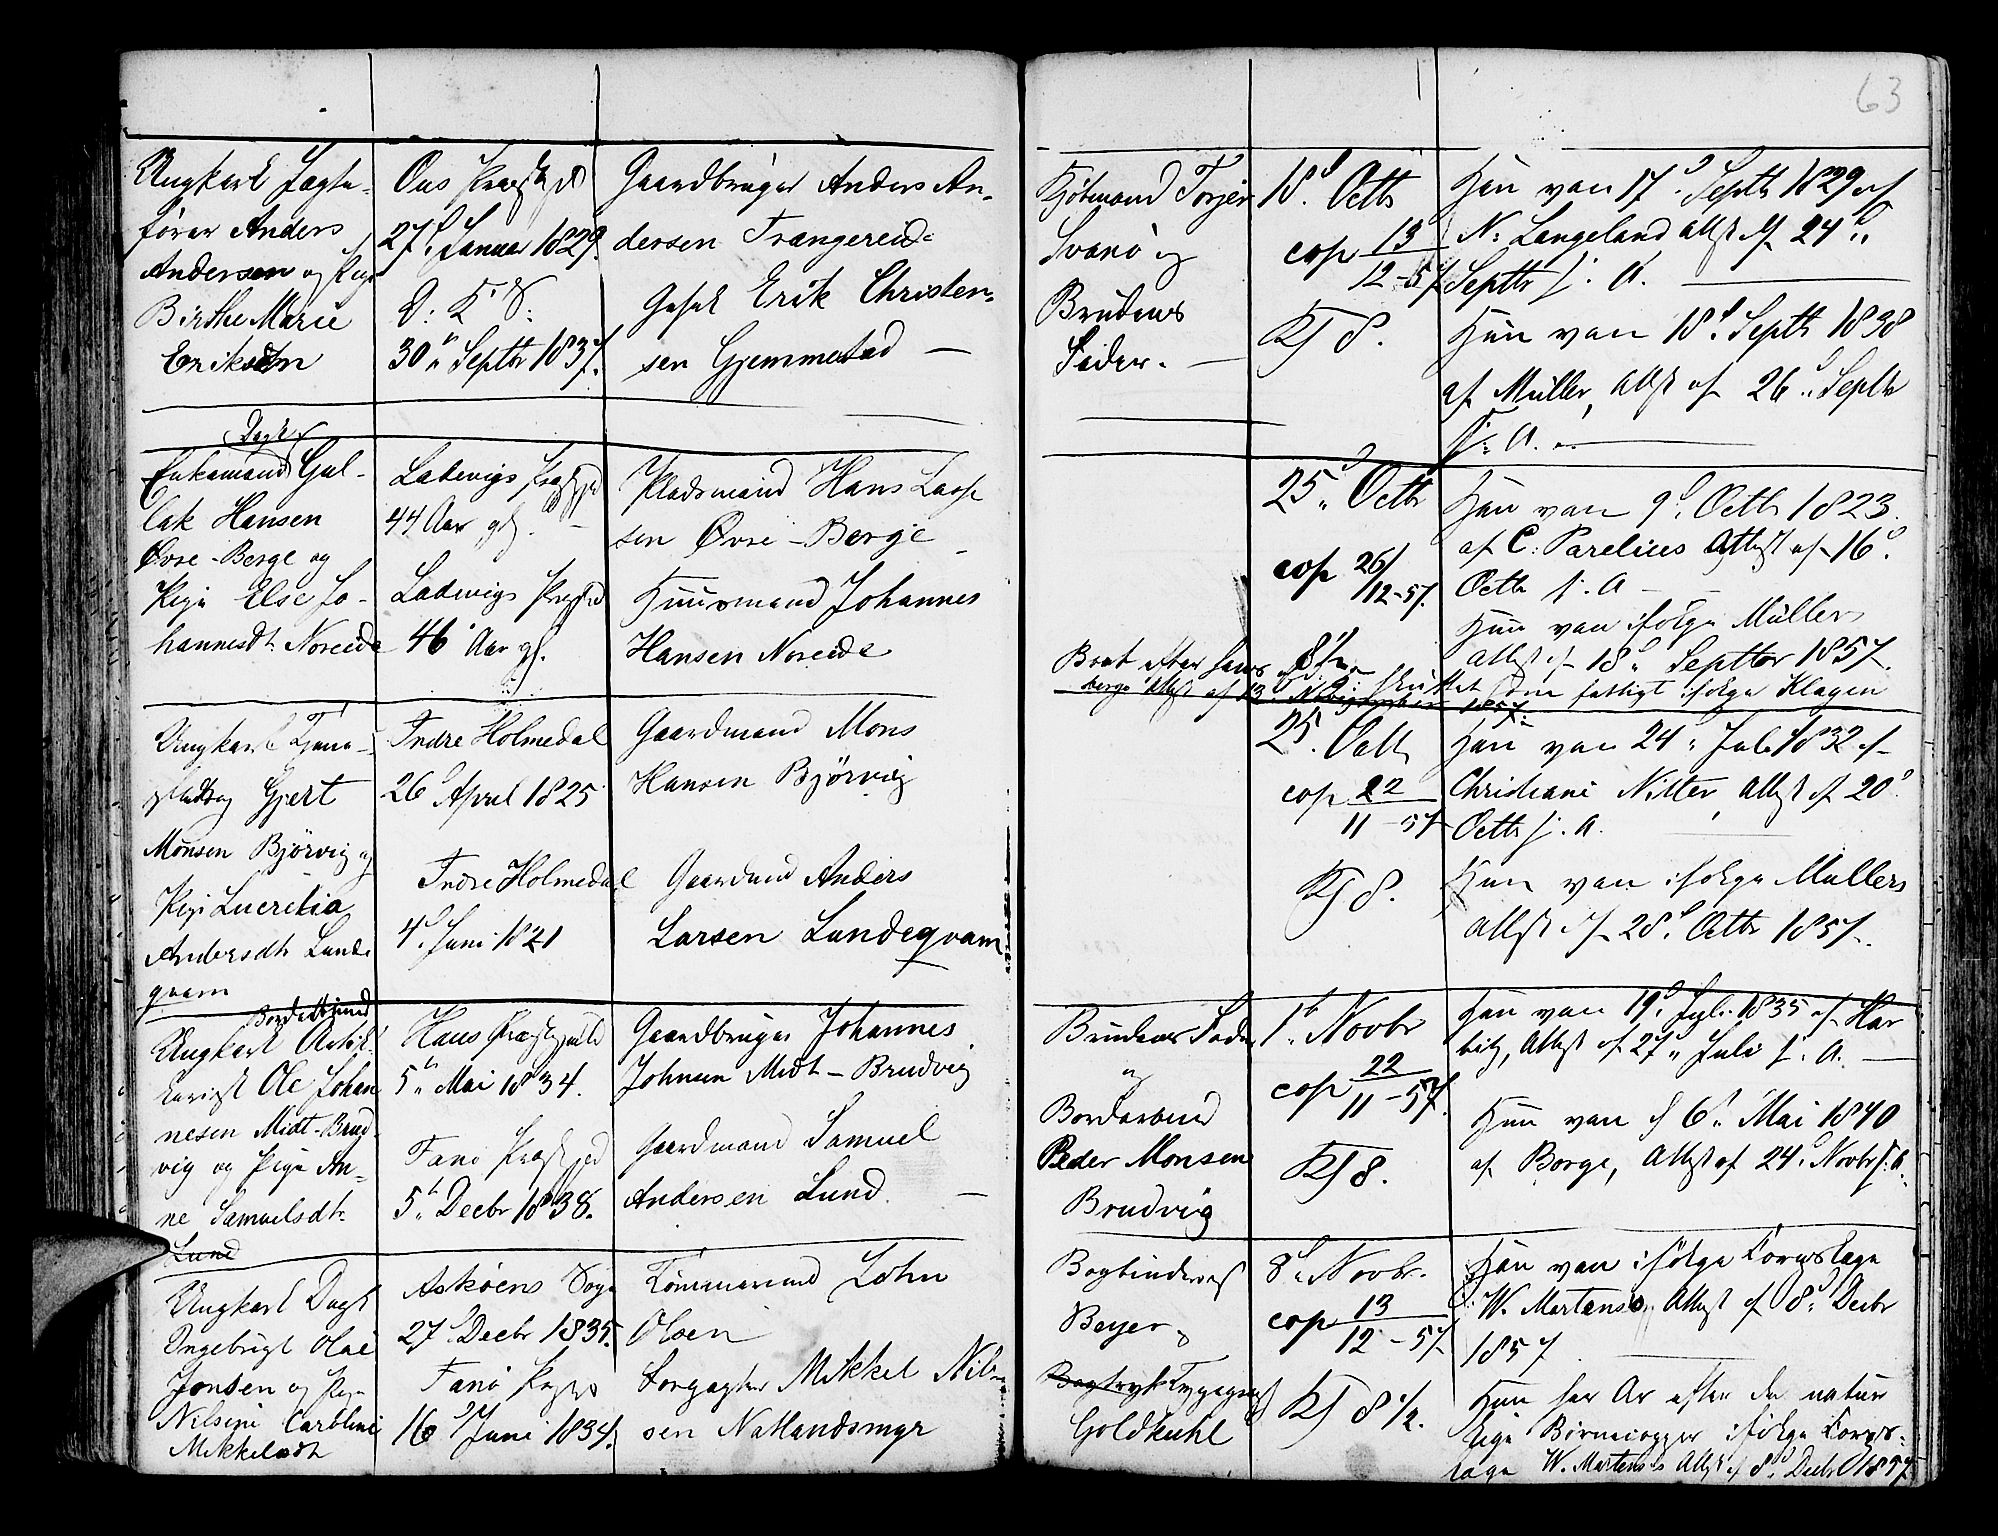 63
Ungkarl Jægte-
fører Anders
Andersen og Pige
Birthe Marie
Eriksdtr
Ous Præstegjd
27d Januar 1829.
30te Septbr 1837.
Gaardbruger Anders An-
dersen Trangereid
Erik Christen-
sen Gjemmestad —
Kjöbmand Torjer
Svanö og
Brudens
Fader. —
18d Octb
cop 13
12-57
KJ 8.
Han van 17d Septbr 1829 af
N: Langeland Attst af 24d
Septbr s: A. —
Hun van 18d Septb 1838
af Müller, Attst af 26d Septbr
s: A. —
Dagk
Enkemand Gul-
lak Hansen
Øvre-Berge og
Pige Else Jo-
hannesdtr Noreide
Ladvigs Præstgjd
44 Aar gl. —
Ladvigs Præstgjd
46 Aar gl.
Pladsmand Hans Lasse
sen Øvre-Berge
Huusmand Johannes
Hansen Noreide
25d Octb
cop 26/
12-57.
8½
Han van 9d Octb 1823.
af C: Parelius Attst af 16d
Octb s. A —
Hun van ifølge Müllers
Attst af 18d Septbr 1857.
som fattigt ifølge Klagen
1857.
Ungkarl Tjene-
Gjert
Monsen Bjørvig og
Pige Lucretia
Andersdtr Lunde
qvam
Indre Holmedal
26d April 1825
Indre Holmedal
4d Juni 1821
Gaardmand Mons
Hansen Bjørvig
Gaardmand Anders
Larsen Lundeqvam
25. Octb
cop 22
11-57
KJ 8.
Han van 24d Juli 1832 af
Christiani Nitter, Attst af 20d
Octb s. A.
Hun van ifølge Mullers
Attst af 28d Octbr 1857.
Ungkarl
Ole Johan
nesen Midt-Brud
vig og Pige An-
ne Samuelsdtr
Lund
Haus Præstegjeld
5te Mai 1834.
Fanö Præstgjed
5te Decbr 1838.
Gaardbruger Johannes
Johnsen Midt-Brudvig
Gaardmand Samuel
Andersen Lund. —
Brudens Fader
og
Bordarbeid
Peder Monsen
Brudvig
1te Novbr
cop 22
11-57.
KJ 8.
Han van 19d Juli 1835 af Har
bitz, Attst af 27d Juli s. A. —
Hun van d 6te Mai 1840
af Borge, Attst af 24d Novbr s. A.
Ungkarl Dagk
Ingebrigt Olai
Jonsen og Pige
Nilsine Caroline
Mikkelsdtr
Askøens Sogn
27d Decbr 1835.
Fanö Præsg
16d Juni 1834.
Tømmermand John
Olsen
Mikkel Nil-
sen Natlandsmyr
Bogbindersv
Beyer &
Goldkuhl
8de Novbr.
cop 13
12-57
KJ 8½.
Han van ifølge Corpslæge
W. Martens's Attst af 8d Decbr
1857
Hun har Ar efter de natur
lige Børnekopper ifølge Corps-
læge W. Martens's Attst af 8d Decbr 1857